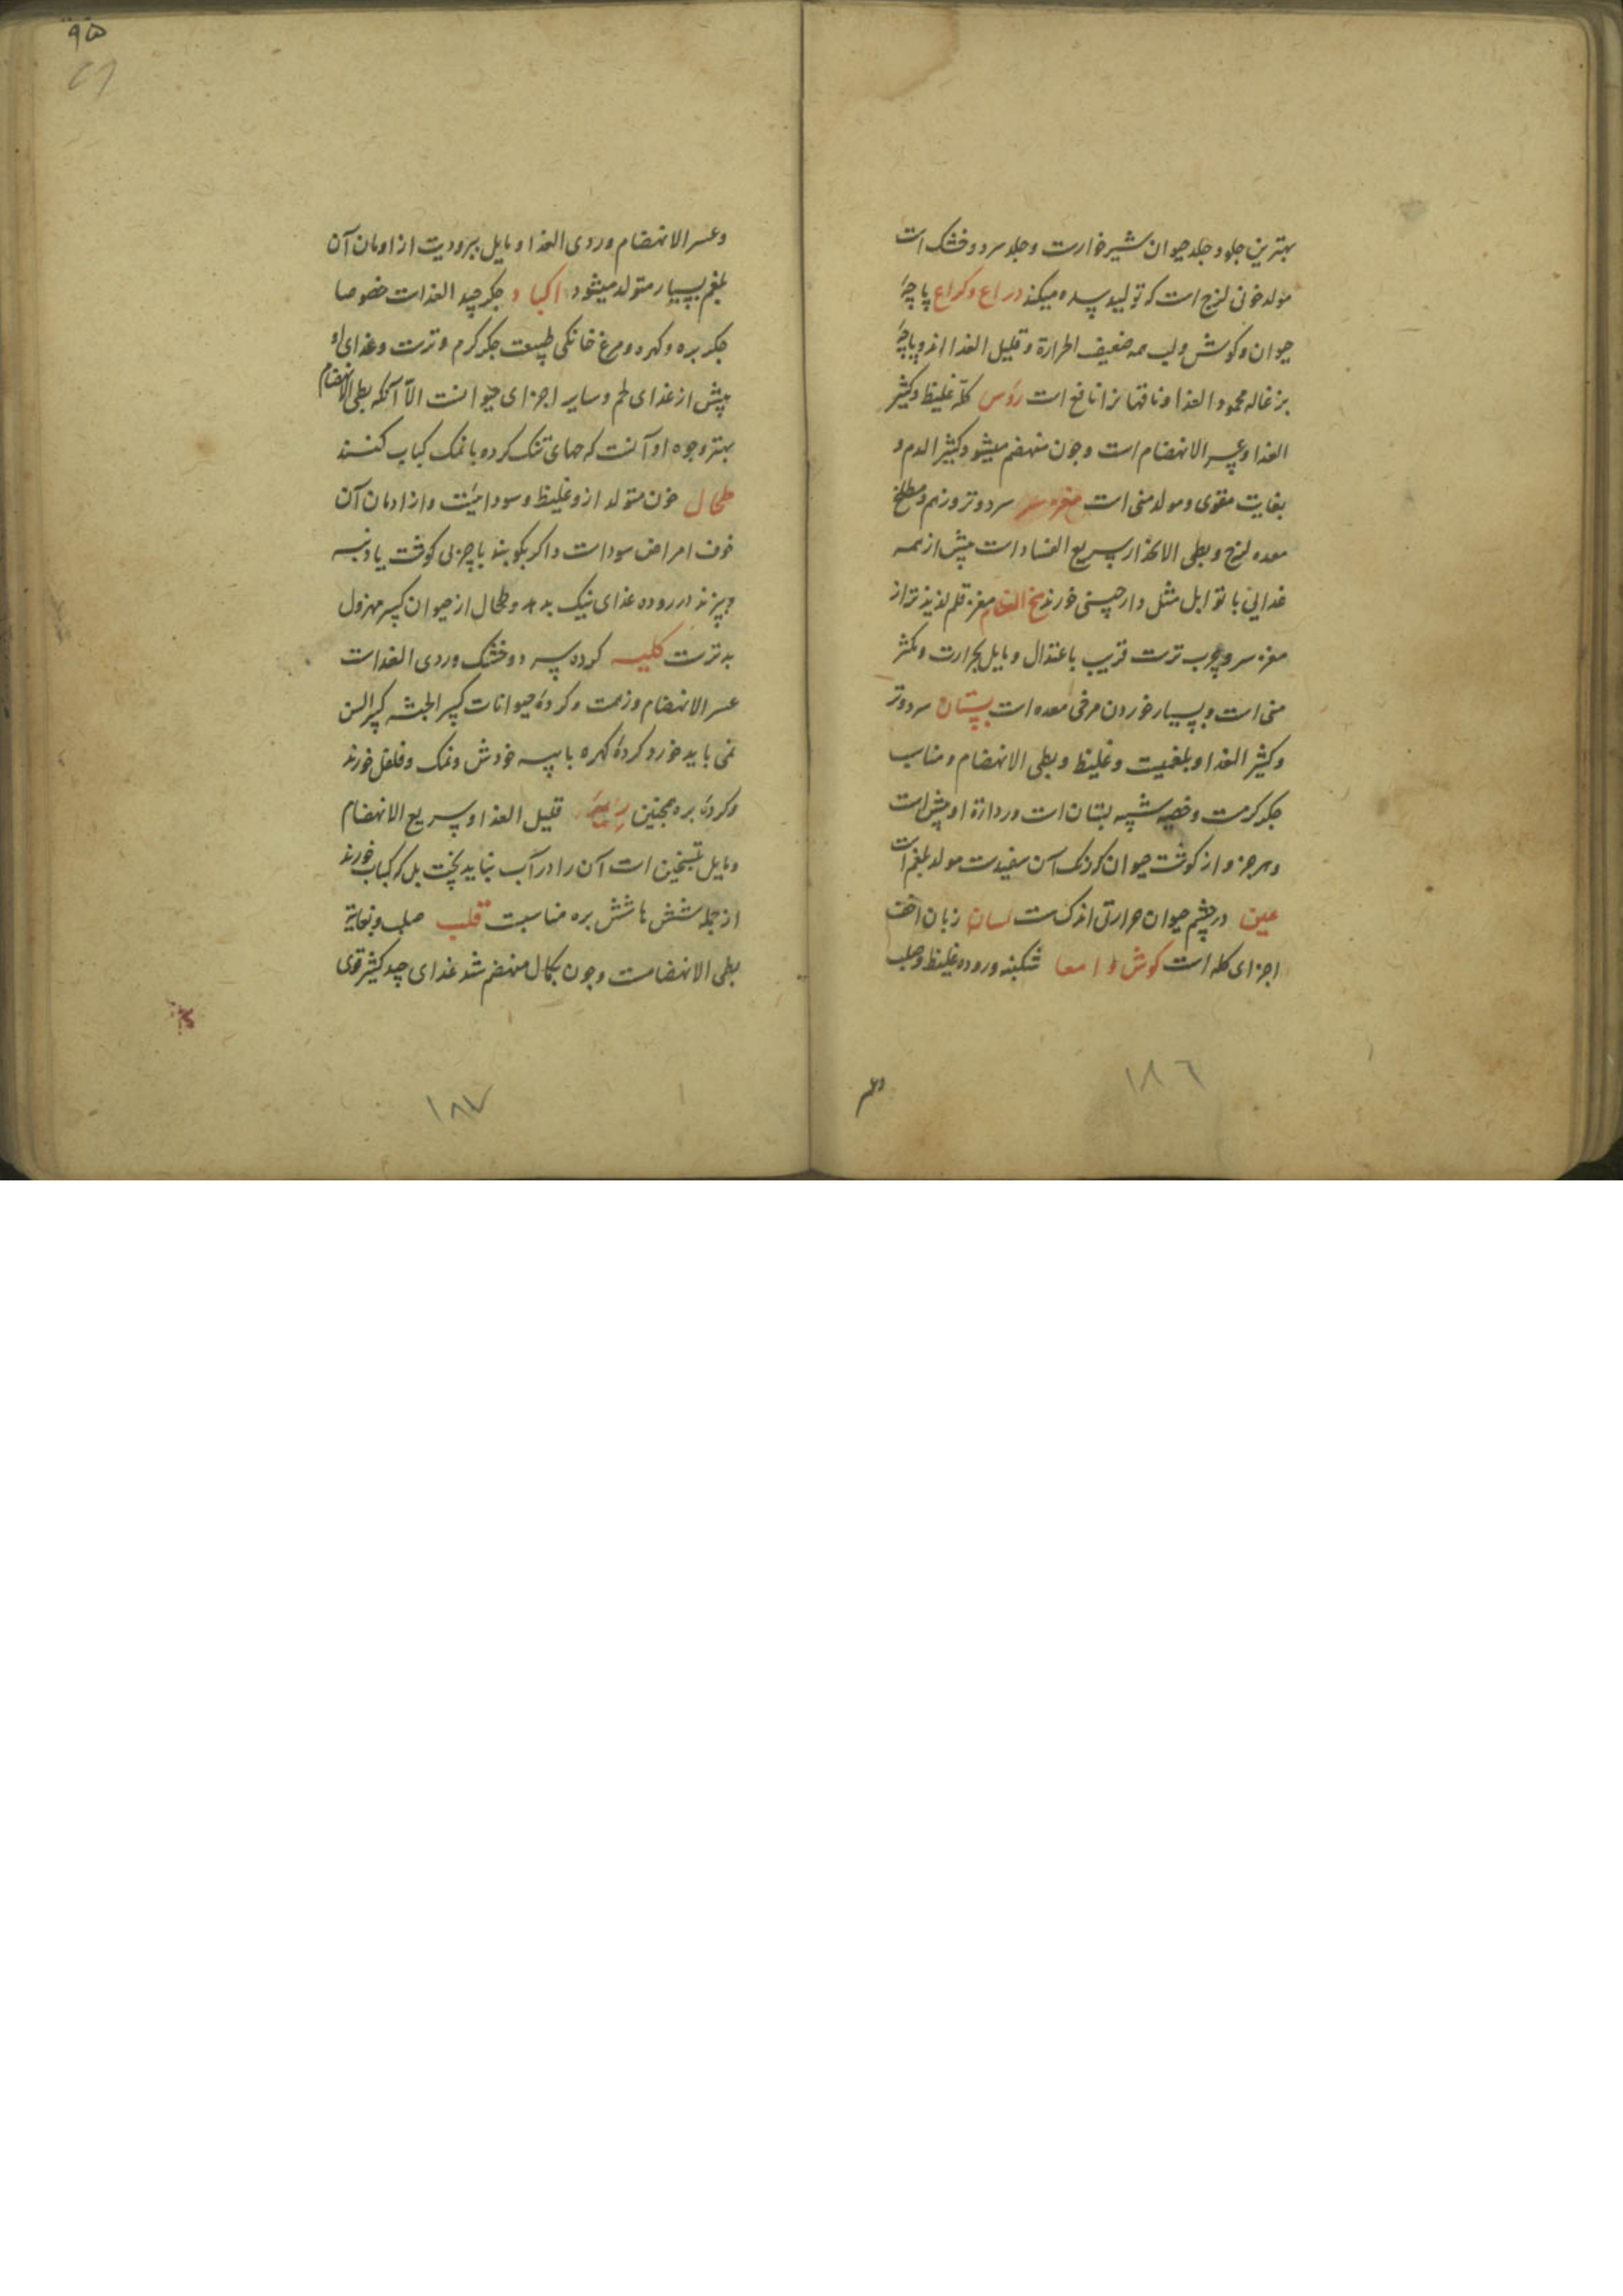 بهترین جلود جلد حیوان شیرخوارست و جلد سرد و خشک است
مولد خون لزج است که تولید سده میکند ذراع و کراع پاچهٔ
حیوان و کوش و لب همه ضعیف الحرارة و قلیل الغذا اند و پاچهٔ
بزغاله محمود الغذا و ناقهانرا نافع است رؤس کلّه غلیظ و کثیر
الغذا و عسر الانهضام است و چون منهضم میشود کثیر الدم و
بغایت مقوی و مولد منی است مغز سر سرد و تر و زنم و ملطخ
معده لزج و بطی الانحدار سریع الفساد است پیش از همه
غدائی با توابل مثل دارچینی خورند مخ العظام مغز قلم لذیذتر از
مغز سر و چرب ترست قریب باعتدال و مایل بحرارت و مکثر
منی است و بسیار خوردن مرخی معده است پستان سرد و تر
و کثیر الغذا و بلغمیست و غلیظ و بطی الانهضام و مناسب
جکر کرمست و خصیه شبیه بستان است و رداءة او بیش است
و هر جزو از کوشت حیوان که رنک آن سفیدست مولد بلغم است
عین در چشم حیوان حرارتی اندکست لسان زبان اخف
اجزای کله است کوش و امعا شکنبه و روده غلیظ و صلب
وعسر
١٨٦
٩٥
وعسر الانهضام و ردی الغذا و مایل ببرودیت از ادمان آن
بلغم بسیار متولد میشود اکباد جکر جید الغذاست خصوصا
جکر بره و کهره و مرغ خانکی طبیعت جکر کرم و ترست و غذای او
بیش از غذای لحم و سایر اجزای حیوانست الّا آنکه بطی الانهضام
بهتر وجوه او آنست که جمای تنک کرده با نمک کباب کنند
طحال خون متولد ازو غلیظ و سوداییست و از ادمان آن
خوف امراض سوداست و اکر بکوبند با چربی کوشت یا دنبه
و بپزند در روده غذای نیک بدهد و طحال از حیوان کبیر مهزول
بدترست کلیه کرده سرد و خشک و ردی الغذاست
عسر الانهضام و زهمت و کردهٔ حیوانات کبیر الجثه کبیر السن
نمی باید خورد کردهٔ کهره با پیه خودش و نمک و فلفل خورند
و کردهٔ بره همچنین ریه قلیل الغذا و سریع الانهضام
و مایل بتسخین است آن را در آب نباید پخت بل که کباب خورند
از جمله شش ها شش بره مناسبت قلب صلب و بغایة
بطی الانهضامست و چون بکمال منهضم شد غذای جید کثیر قوی
١٨٧